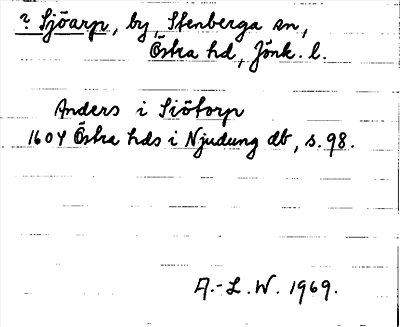 ? Sjöarp, by, Stenberga sn,
Östra hd, Jönk. l.
Anders i Siötorp
1604 Östra hds i Njudung db, s. 98.
A.-L. W. 1969.